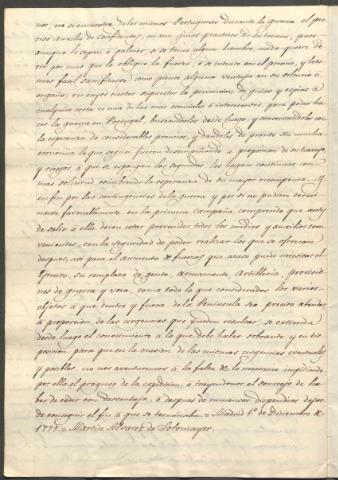 nos, no se encuentra de los mismos Portugueses durante la guerra el pre
ciso auxilio de confidentes, ni aun guias practicos de su terreno, pues
aunque lo sepan á palmos, si se toma algun hombre, nada quiere de
cir por mas que le obligue la fuerza, ó se intente con el premio, y has
mas facil sacrificarse, como piense alguna ventaja en su silencio ó
engaño; en cuyos ciertos supuestos la prevencion de guias y espias á
cualquier costa es una de las mas esenciales é interesantes, para poder ha
cer la guerra en Portugal, buscandolos desde luego, y conservandolos con
la esperanza de considerables premios, y dandolos de pronto sin mucha
economia lo que segun fueren desempeñando á proporcion de su trabajo,
y riesgos á que se expongan los segundos, les hagan continuar con
mas solicitud concibiendo la esperanza de su mayor recompensa. Y
en fin por las contingencias de la guerra y por si no pudiere termi
narse favorablemente en la primera campaña, comprendo que antes
de salir á ella deven estar prevenidos todos los medios y auxilios con
venientes, con la seguridad de poder realizar los que se ofrezcan
despues, asi para el aumento de fuerzas que acaso pueda necesitar el
Egercito, su remplazo de gente, armamento, artilleria, provisio
nes de guerra y voca, como todo lo que considerados los varios
objetos á que dentro y fuera de la Peninsula sea preciso atender,
á proporcion de las urgencias que pueden resultar, se extienda
desde luego el conocimiento á lo que debe haber sobrante, y en dis
posicion para que en la ocasion de las mismas urgencias eventuales
y posibles, no nos aventuremos á la falta de lo necesario impidiendo
por ella el progreso de la expedicion, ó trayendonos el sonrojo de ha
ber de ceder con desventaja, ó despues de inmensos dispendios dejar
de conseguir el fin á que se terminaba. = Madrid 1º de Diciembre de
1775. = Martin Alvarez de Sotomayor.